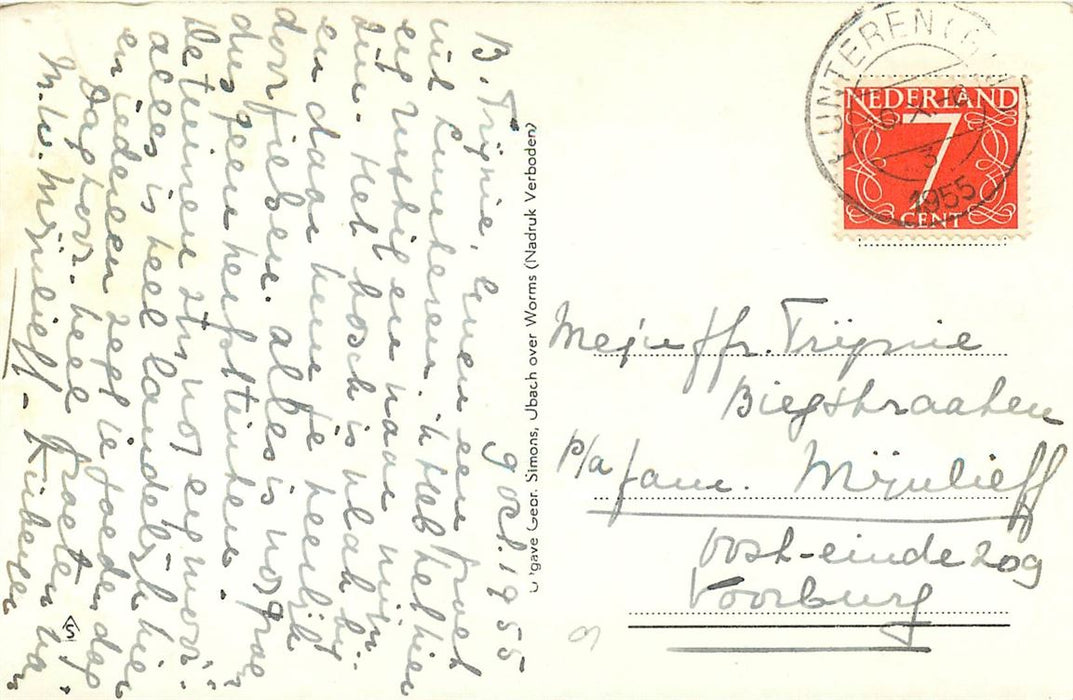 9 Oct. 1955
B. Trijnie, even een groet
uit Lunteren. Heb het hier
erg rustig en naar mijn
zin. Het bosch is vlak bij
en daar heerlijk
dorpje. alles is nog groen
dus geen herfsttinten.
De tuinen zijn nog
alles is heel landelijk hier
en iedereen zegt je goeden dag
Dag hoor. veel groeten van
M. W. Mijnlieff - Kuiken
Uitgave Gebr. Simons, Ubach over Worms (Nadruk Verboden)
LUNTEREN (GLD)
1955
NEDERLAND
7
CENT
Mejuffr. Trijnie
Biegstraaten
p/a fam. Mijnlieff
Oost-einde 209
Voorburg
S